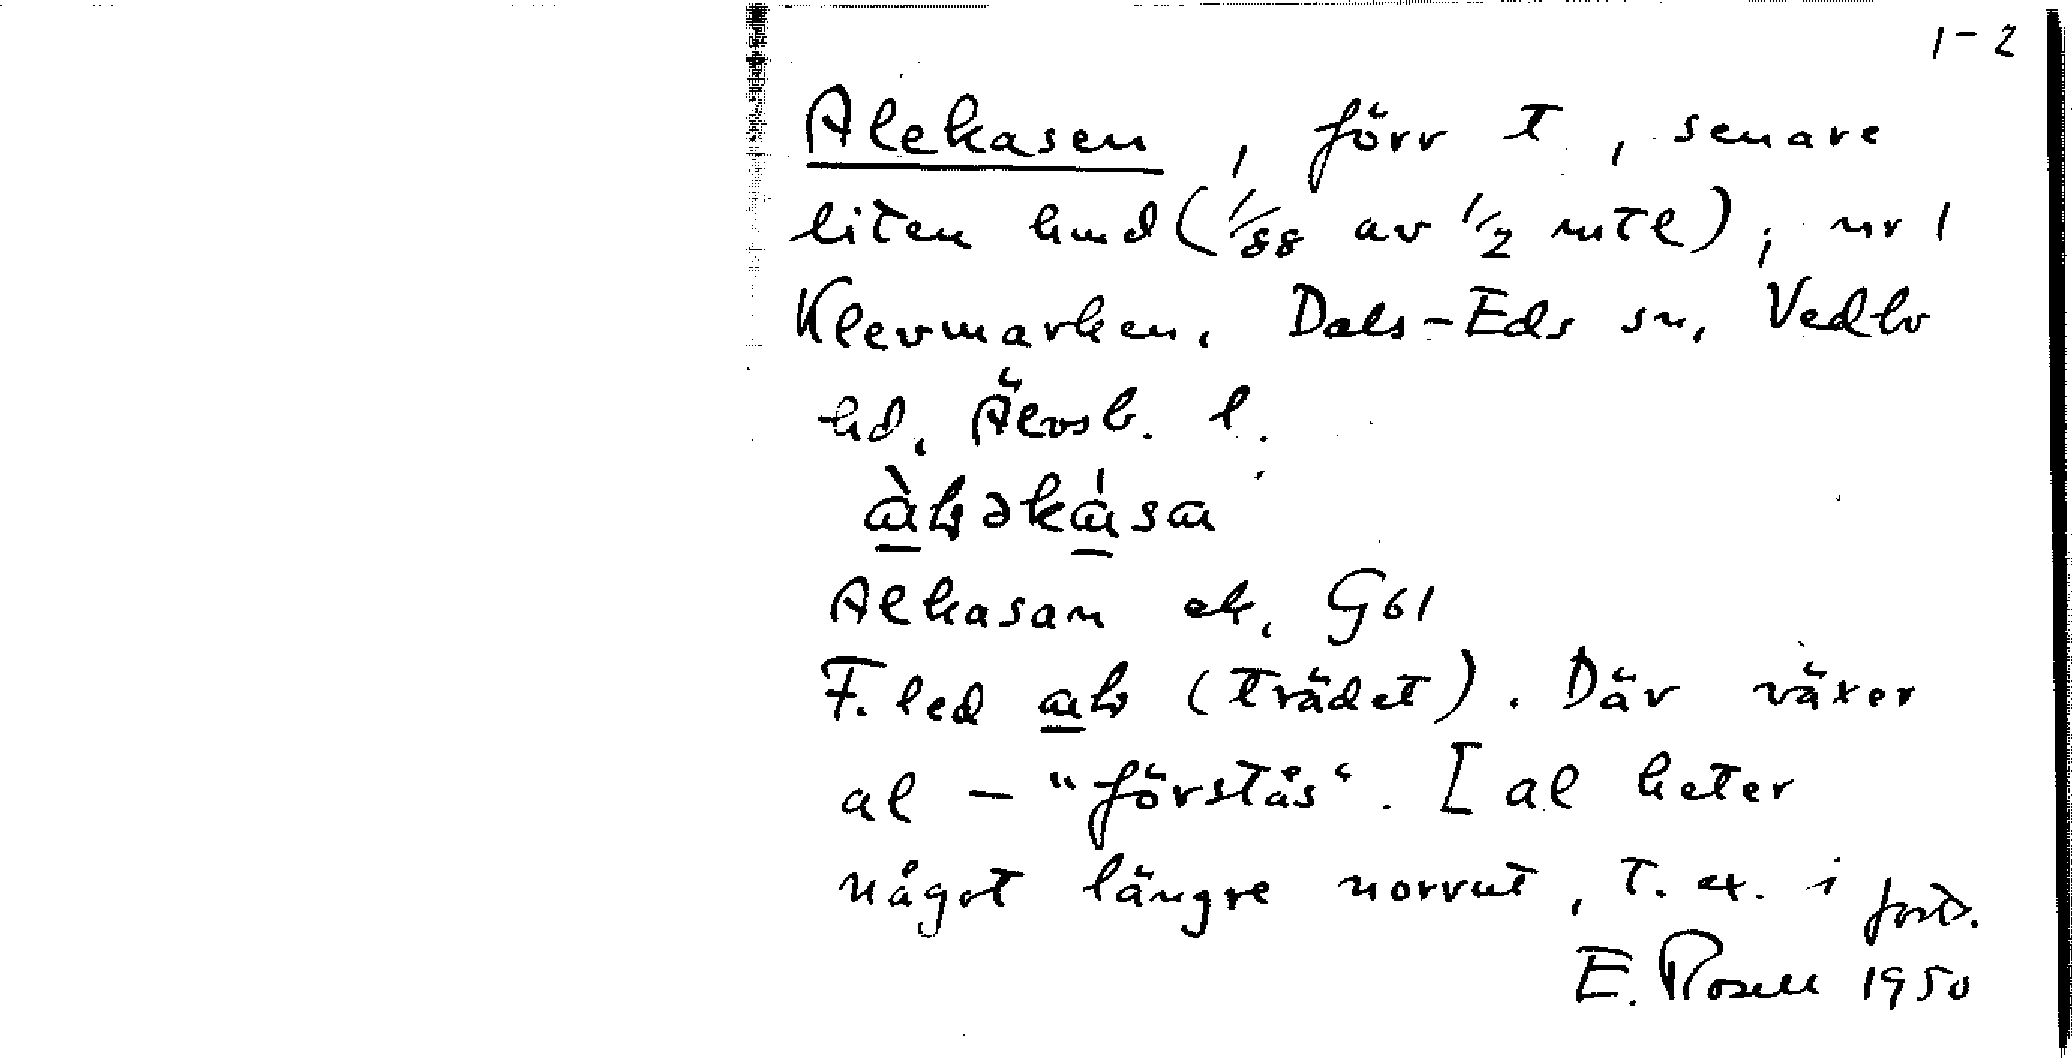 1-2
Alekasen, förr t, senare
liten hmd (1/88 av 1/2 mtl), nr 1
Klevmarken, Dals-Eds sn, Vedbo
hd, Älvsb. l.
Alkasan ek, G61
F. led (trädet). Där växer
al - "förstås". [al heter
något längre norrut, t. ex. i forts.
E. Rosell 1950